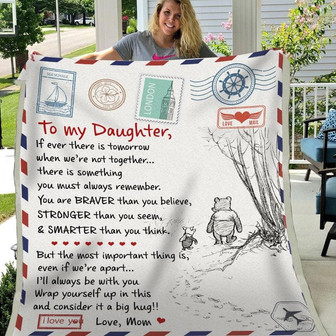 LONDON
LOVE MAIL
To my Daughter,
If ever there is tomorrow
when we're not together...
there is something
you must always remember.
You are BRAVER than you believe,
STRONGER than you seem,
& SMARTER than you think.
But the most important thing is,
even if we're apart...
I'll always be with you
Wrap yourself up in this
and consider it a big hug!!
i love you Love, Mom